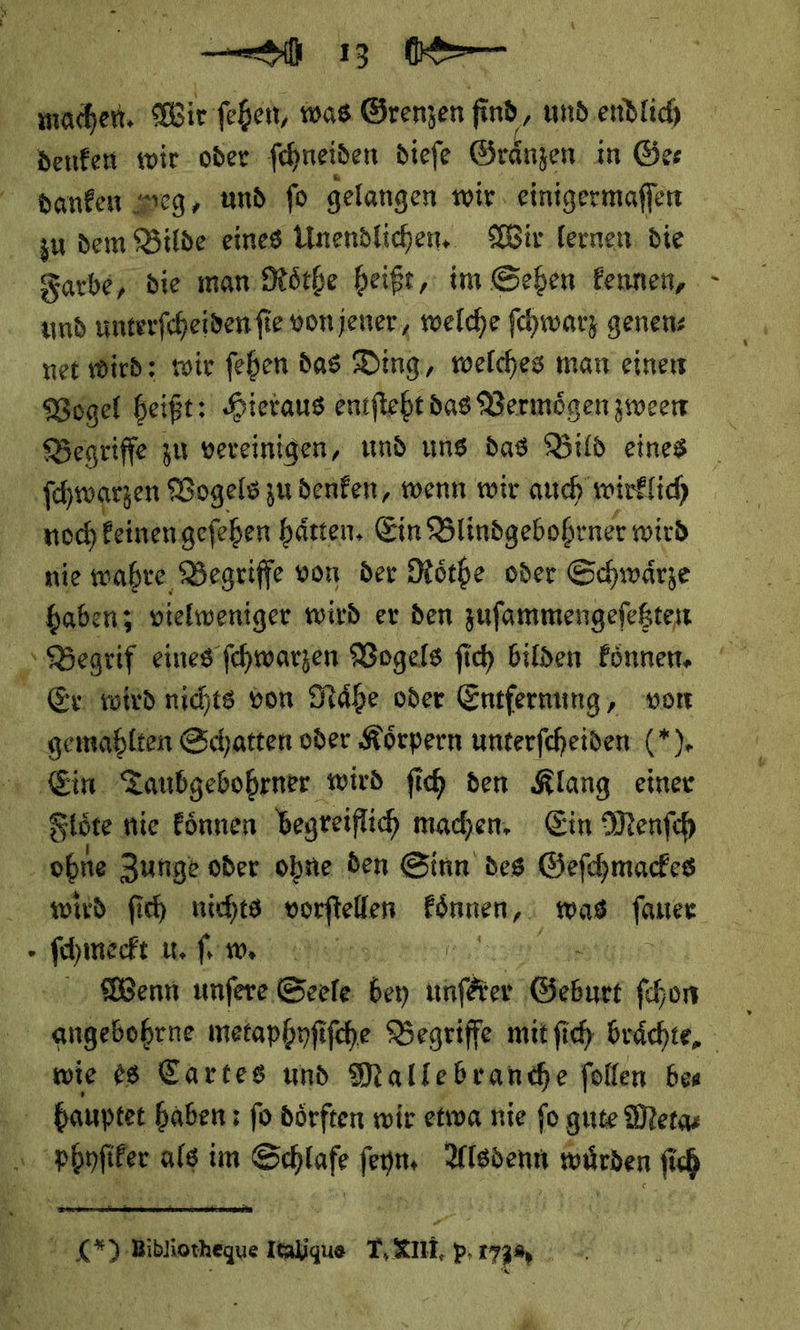 13
machen. Wir sehen, was Grenzen sind, und endlich
denken wir oder schneiden diese Gränzen in Ge-
danken weg, und so gelangen wir einigermassen
zu dem Bilde eines Unendlichen. Wir lernen die
Farbe, die man Röthe heißt, im Sehen kennen,
und unterscheiden sie von jener, welche schwarz genen-
net wird: wir sehen das Ding, welches man einen
Vogel heißt: Hieraus entsteht das Vermögen zween
Begriffe zu vereinigen, und uns das Bild eines
schwarzen Vogels zu denken, wenn wir auch wirklich
noch keinen gesehen hätten. Ein Blindgebohrner wird
nie wahre Begriffe von der Röthe oder Schwärze
haben; vielweniger wird er den zusammengesetzten
Begrif eines schwarzen Vogels sich bilden können.
Er wird nichts von Nähe oder Entfernung, von
gemahlten Schatten oder Körpern unterscheiden (*).
Ein Taubgebohrner wird sich den Klang einer
Flöte nie können begreiflich machen. Ein Mensch
ohne Zunge oder ohne den Sinn des Geschmackes
wird sich nichts vorstellen können, was sauer
schmeckt u. s. w.
Wenn unsere Seele bey unserer Geburt schon
angebohrne metaphysische Begriffe mit sich brächte,
wie es Cartes und Mallebranche sollen be-
hauptet haben: so dörften wir etwa nie so gute Meta-
physiker als im Schlafe seyn. Alsdenn würden sich
(*) Bibliotheque Italique T. XIII. p.